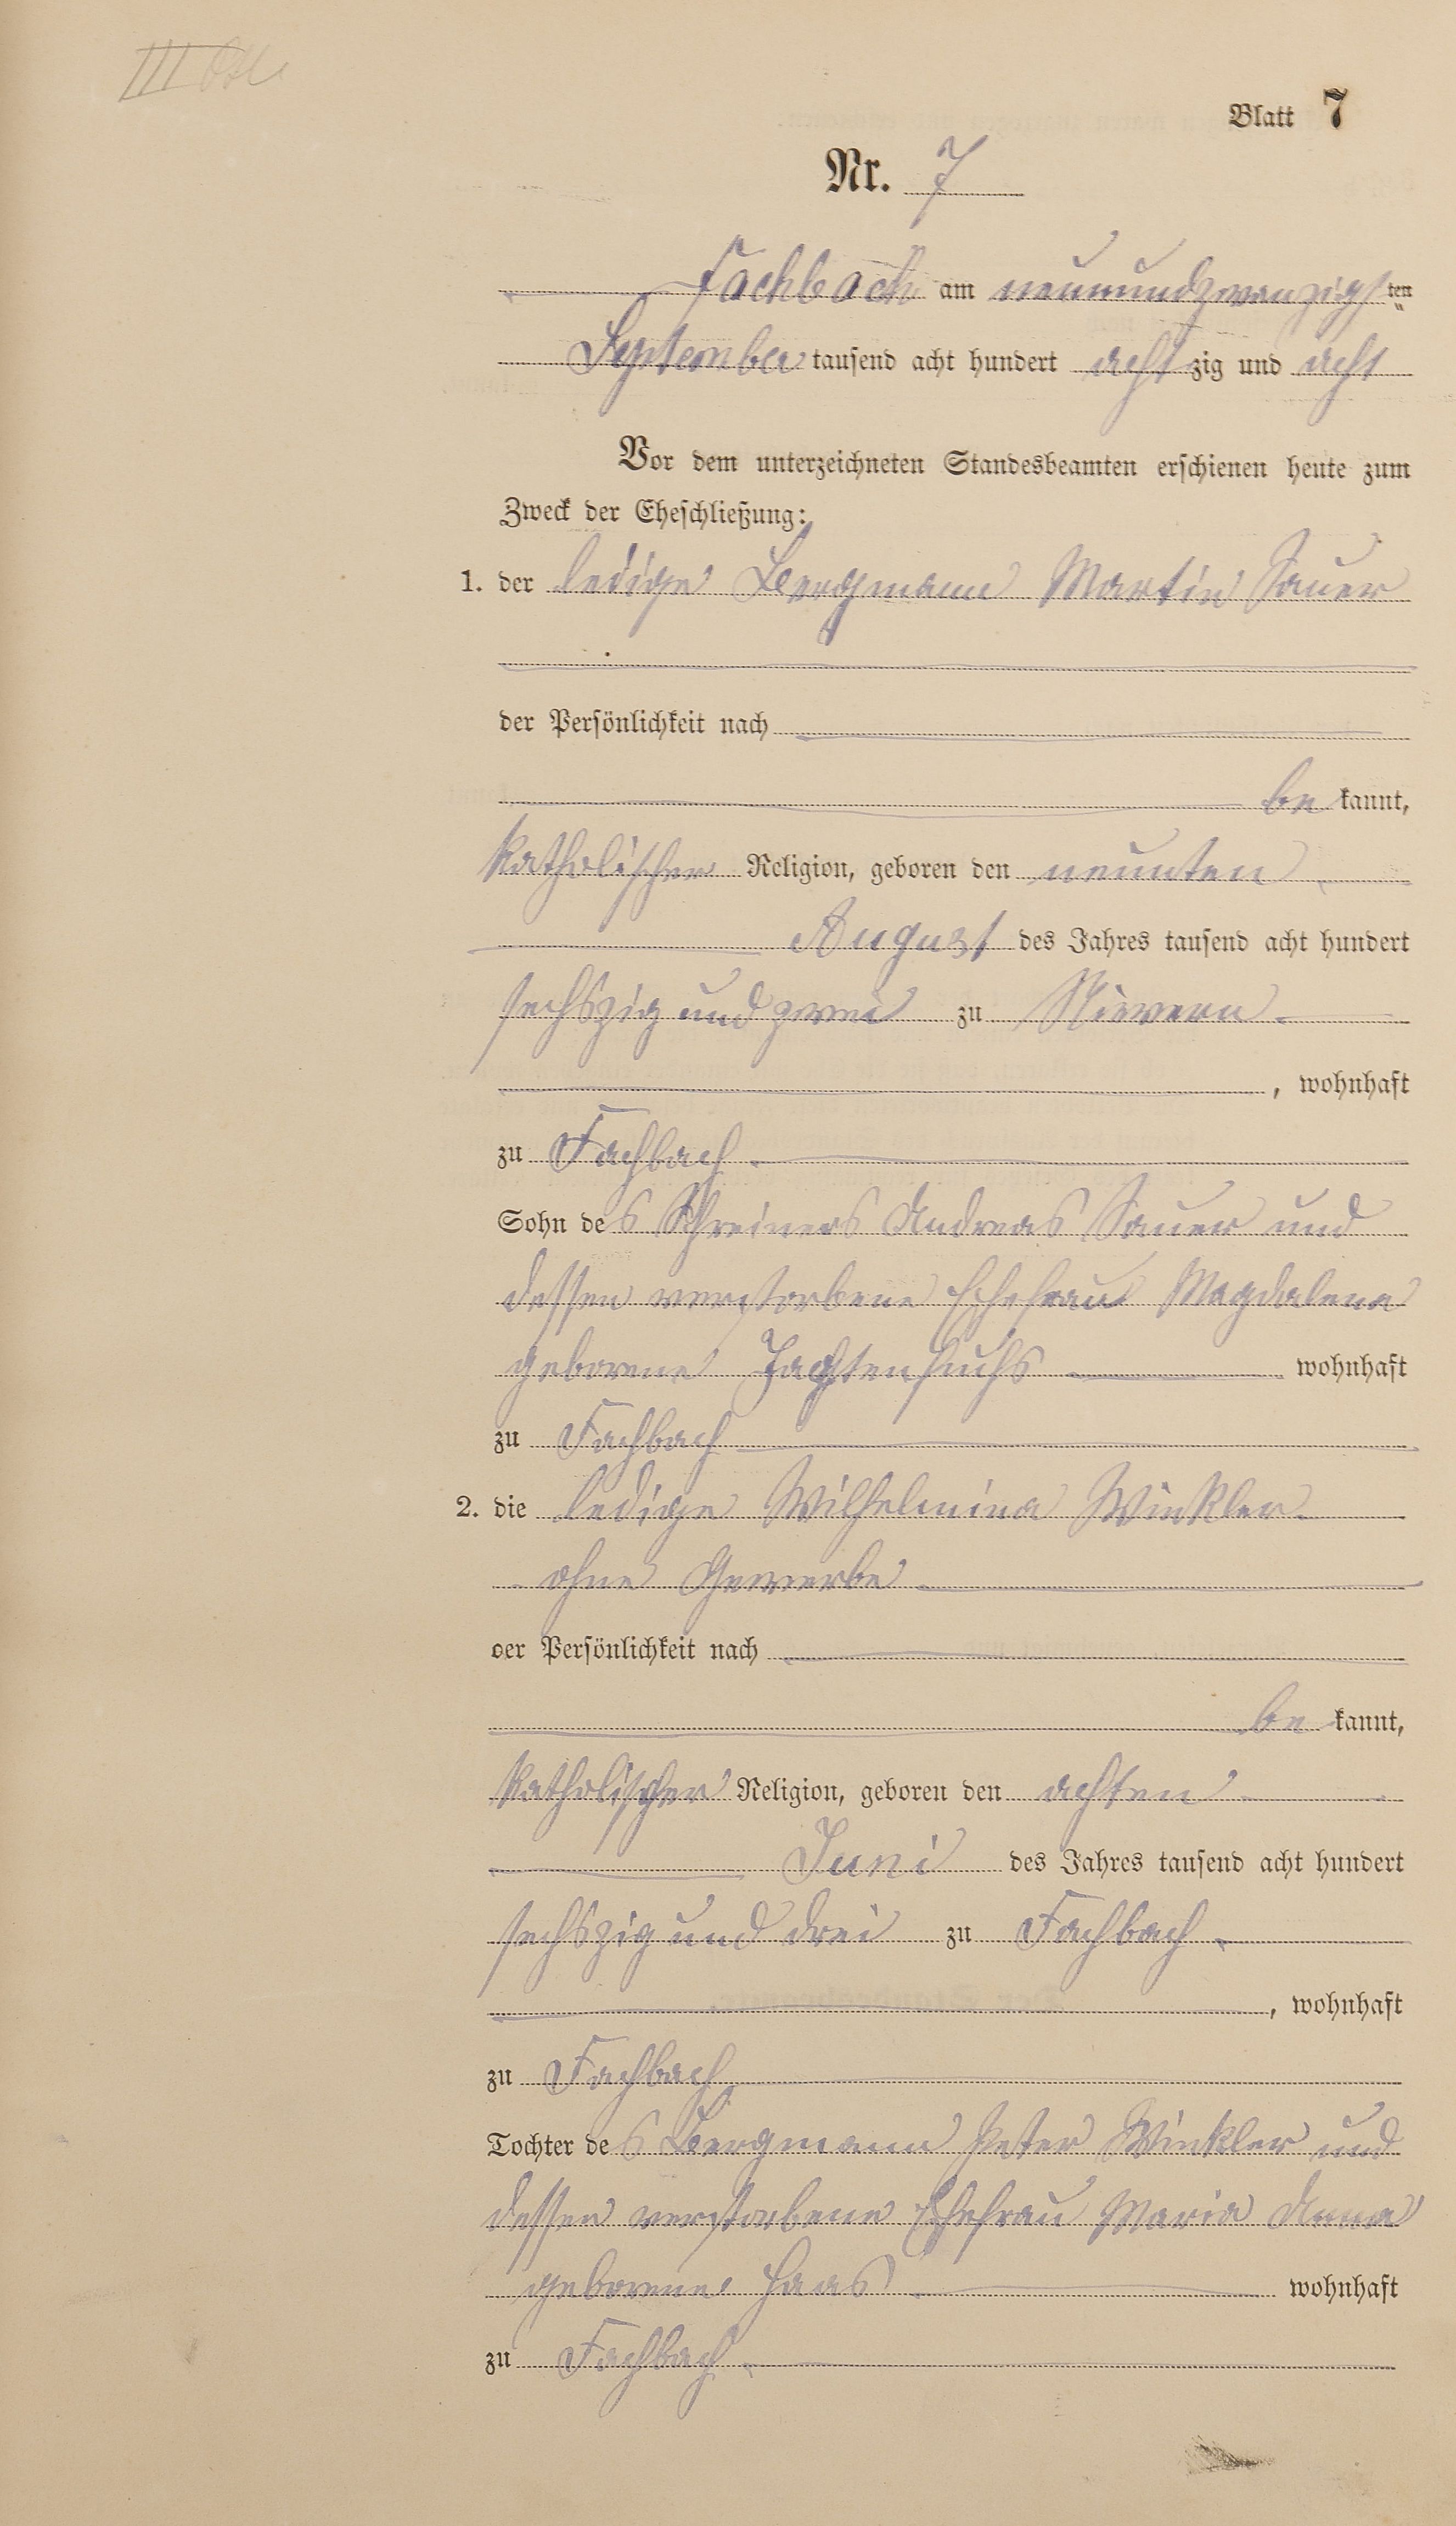 Blatt 7
Nr. 7
Fachbach am neunundzwanzigsten
September tausend acht hundert achtzig und acht
Vor dem unterzeichneten Standesbeamten erschienen heute zum
Zweck der Eheschließung:
1. der ledige Bergmann Martin Sauer
der Persönlichkeit nach
be kannt,
katholischer Religion, geboren den neunten
August des Jahres tausend acht hundert
sechszig und zwei zu Nievern
, wohnhaft
zu Fachbach
Sohn des Schreiners Andreas Sauer und
dessen verstorbene Ehefrau Magdalena
geborene wohnhaft
zu Fachbach
2. die ledige Wilhelmina Winkler
ohne Gewerbe
der Persönlichkeit nach
be kannt,
katholischer Religion, geboren den achten
Juni des Jahres tausend acht hundert
sechszig und drei zu Fachbach
, wohnhaft
zu Fachbach
Tochter des Bergmann Peter Winkler und
dessen verstorbene Ehefrau Maria Anna
geborene Haas wohnhaft
zu Fachbach